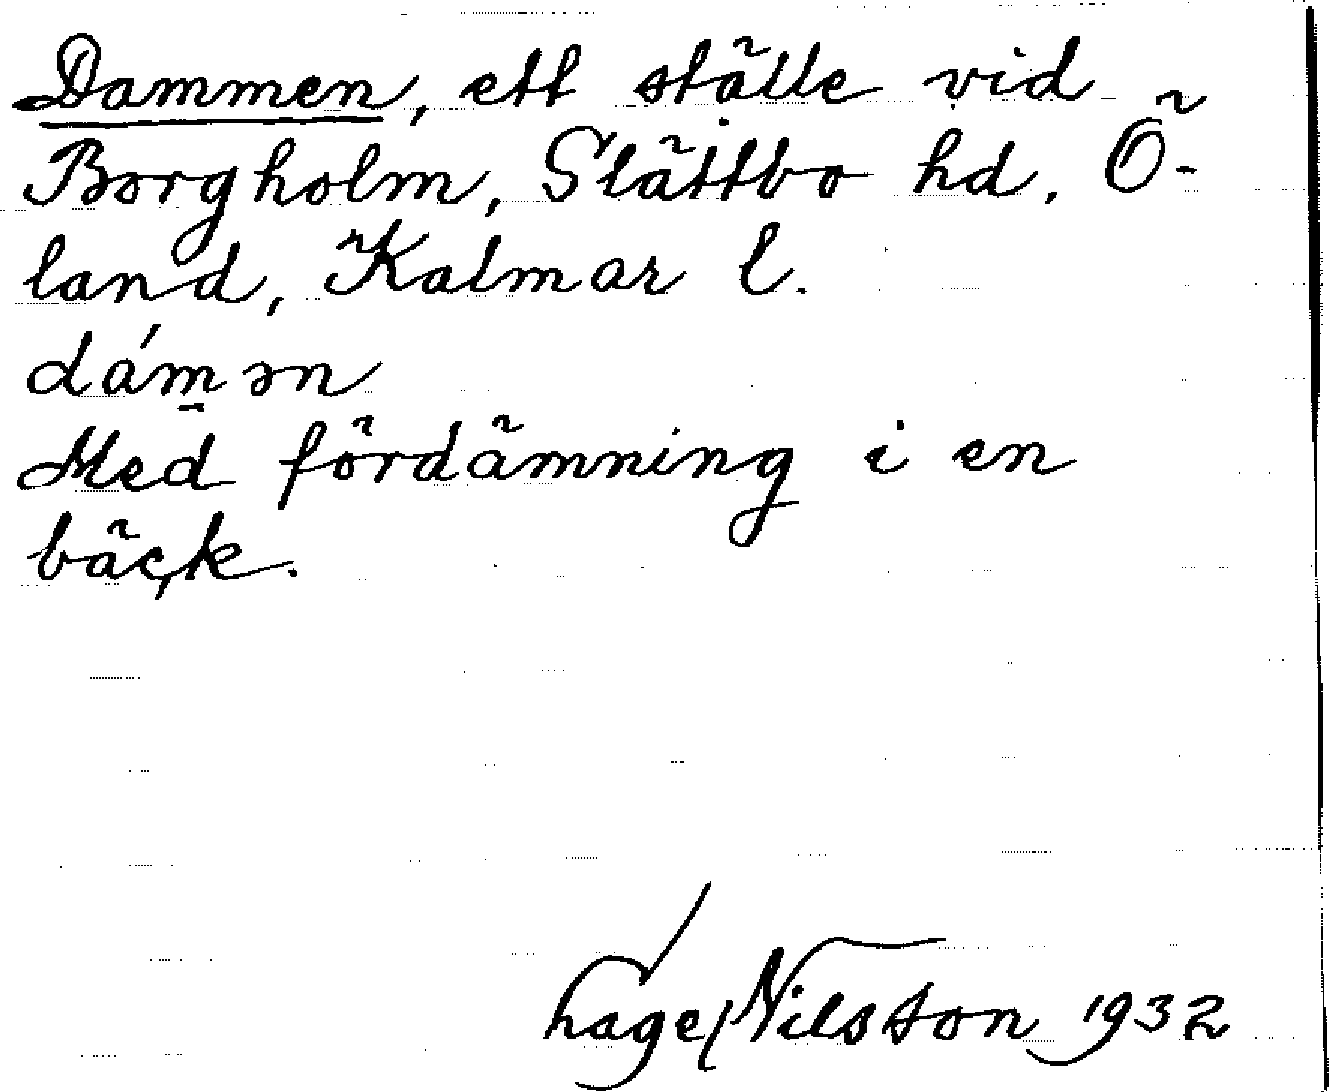 Dammen, ett ställe vid
Borgholm, Slättbo hd, Ö-
land, Kalmar l.
dám̱ən
Med fördämning i en
bäck.
hage Nilsson 1932